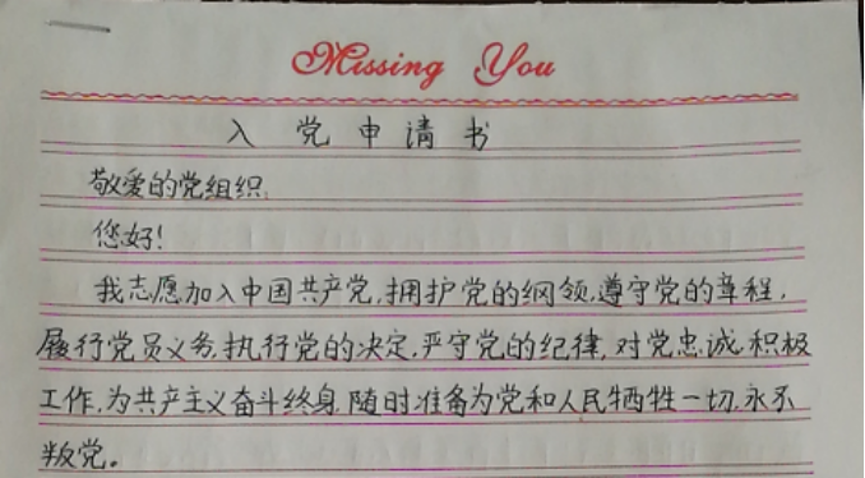 Missing You
入党申请书
敬爱的党组织:
您好!
我志愿加入中国共产党,拥护党的纲领,遵守党的章程,
履行党员义务,执行党的决定,严守党的纪律,对党忠诚,积极
工作,为共产主义奋斗终身,随时准备为党和人民牺牲一切,永不
叛党。